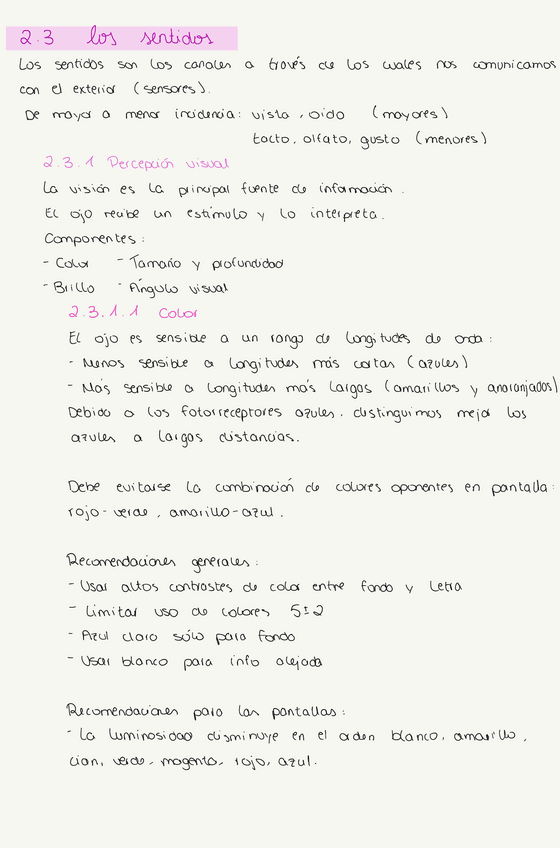 2.3 los sentidos
Los sentidos son los canales a través de los cuales nos comunicamos
con el exterior (sensores).
De mayor a menor incidencia: vista, oido (mayores)
tacto, olfato, gusto (menores)
2.3.1 Percepción visual
La visión es la principal fuente de información.
El ojo recibe un estímulo y lo interpreta.
Componentes:
- Color - Tamaño y profundidad
- Brillo - Ángulo visual
2.3.1.1 Color
El ojo es sensible a un rango de longitudes de onda:
- Menos sensible a longitudes más cortas (azules)
- Más sensible a longitudes más largas (amarillos y anaranjados)
Debido a los fotorreceptores azules. distinguimos mejor los
azules a largas distancias.
Debe evitarse la combinación de colores oponentes en pantalla:
rojo-verde, amarillo-azul.
Recomendaciones generales:
- Usar altos contrastes de color entre fondo y letra
- Limitar uso de colores 5±2
- Azul claro sólo para fondo
- Usar blanco para info alejada
Recomendaciones para las pantallas:
- La luminosidad disminuye en el orden blanco, amarillo,
cian, verde, magenta, rojo, azul.